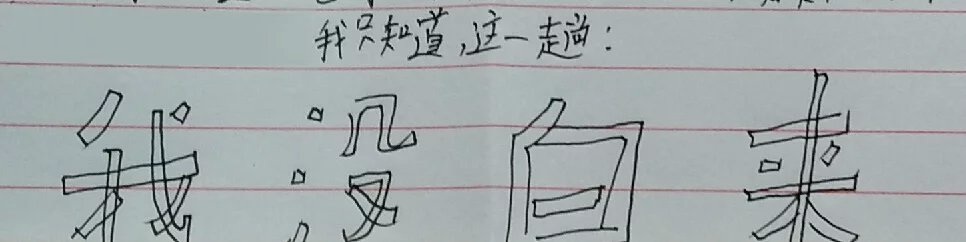 我只知道,这一趟:
我没白来